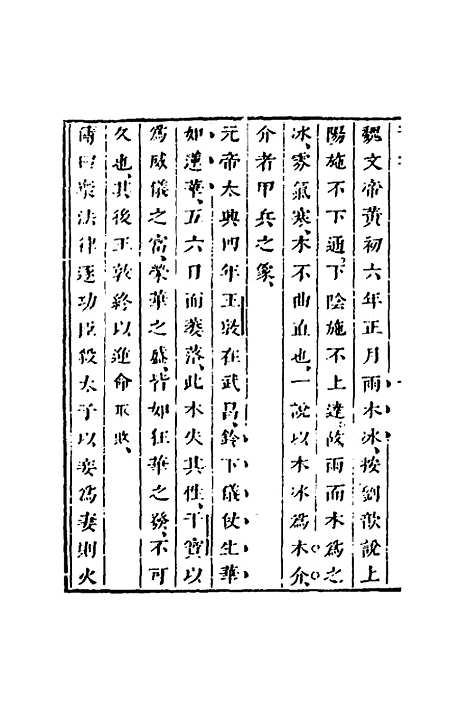 魏文帝黃初六年正月雨木冰、按劉歆說上
陽施不下通、下陰施不上達、故雨而木為之
冰、雰氣寒、木不曲直也、一說以木冰為木介、
介者甲兵之象、
元帝太興四年王敦在武昌、鈴下儀仗生華
如蓮華、五六日而萎落、此木失其性、干寶以
為威儀之富、榮華之盛、皆如狂華之發、不可
久也、其後王敦終以逆命取敗、
傳曰棄法律逐功臣殺太子以妾為妻則火